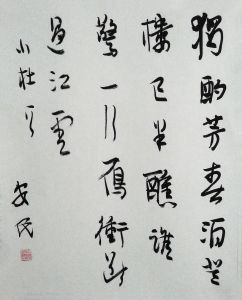 獨酌芳春酒登
樓已半醺誰
驚一行雁衝斷
過江雲
小杜
安民